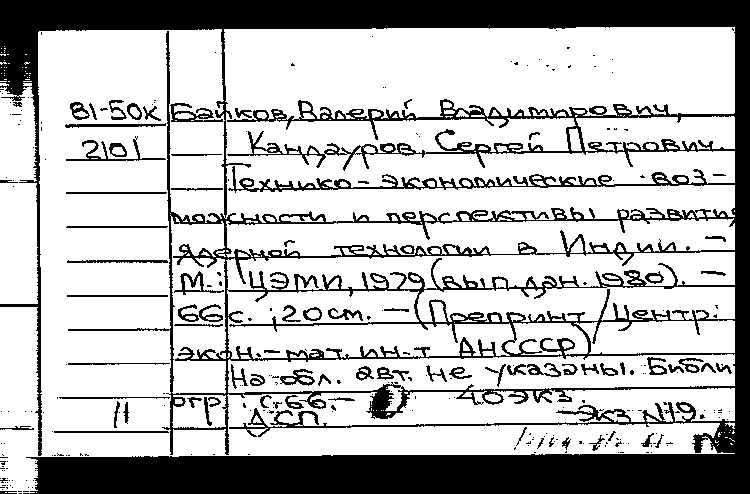 81-50к Байков, Валерий Владимирович,
2101 Кандауров, Сергей Петрович.
Технико-экономические воз-
можности и перспективы развития
ядерной технологии в Индии. –
М.: ЦЭМИ, 1979 (вып. дан. 1980). –
66 с. ; 20 см. – (Препринт / Центр.
экон.-мат. ин-т АНСССР)
На обл. авт. не указаны. Библи-
огр.: с. 66. – 40 экз.
11 ДСП. – Экз. N 19.